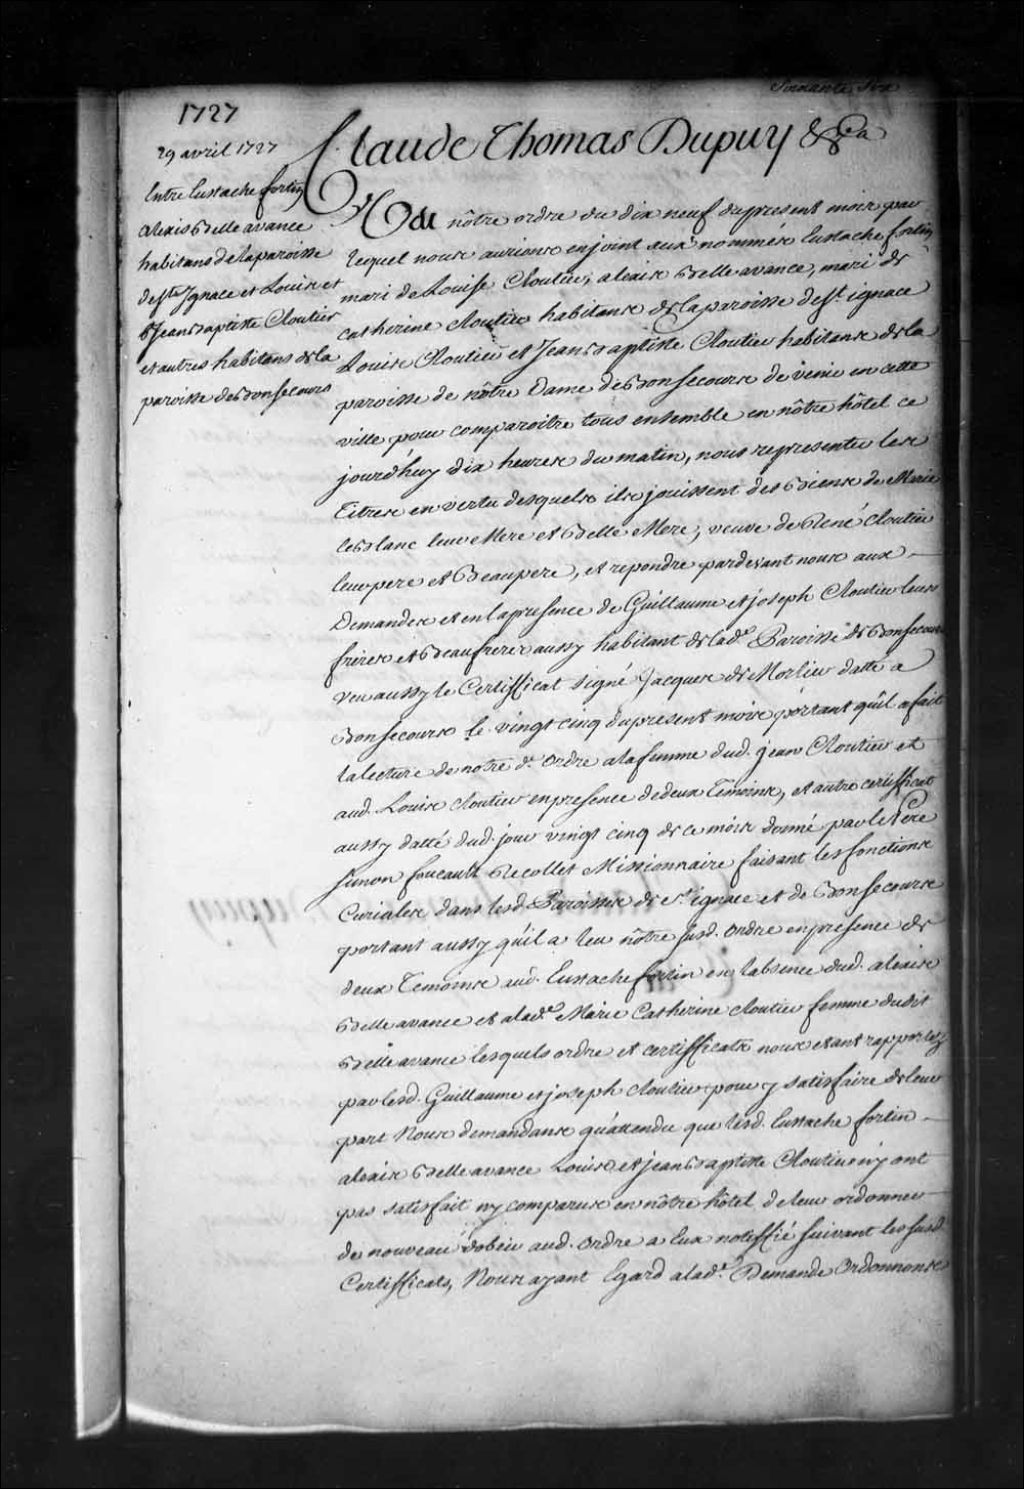 Soixante six
1727
29 avril 1727
Entre Eustache fortin
alexis Belleavance
habitans de la paroisse
de St. Ignace et Louis et
et Jean Baptiste Cloutier
et autres habitans de la
paroisse de Bonsecours
Claude Thomas Dupuy &ca
Veu nôtre ordre du dix neuf du present mois par
lequel nous aurions enjoint aux nommés Eustache fortin
mari de Louise Cloutier, alexis Belleavance, mari de
catherine Cloutier habitans de la paroisse de St. ignace
Louis Cloutier et Jean Baptiste Cloutier habitans de la
paroisse de nôtre Dame de Bonsecours de venir en cette
ville pour comparoitre tous ensemble en nôtre hôtel ce
jourd'huy dix heures du matin, nous representer les
Titres en vertu desquels ils jouissent des Biens de Marie
leblanc leur Mere et Belle Mere, veuve de René Cloutier
leur pere et Beaupere, et repondre pardevant nous aux
Demandes et en la presence de Guillaume et joseph Cloutier leurs
freres et Beaufreres aussy habitant de lade. Paroisse de Bonsecours
veu aussy le Certifficat signé Jacques de Morlieu datté a
Bonsecours le vingt cinq du present mois portant qu'il a fait
la lecture de notre d. ordre a la femme dud. jean Cloutier et
aud. Louis Cloutier en presence de deux Temoins, et autre certifficat
aussy datté dud. jour vingt cinq de ce mois donné par le Pere
simon foucault Recollet Missionnaire faisant les fonctions
Curiales dans lesd. Paroisses de St. ignace et de Bonsecours
portant aussy qu'il a leu nôtre susd. ordre en presence de
deux Temoins aud. Eustache fortin en l'absence dud. alexis
Belleavance et a lade. Marie Catherine Cloutier femme dudit
Belleavance lesquels ordre et certifficats nous etant rapportez
par lesd. Guillaume et joseph Cloutier pour y satisfaire de leur
part Nous demandans qu'attendu que lesd. Eustache fortin
alexis Belleavance Louis et jean Baptiste Cloutier n'y ont
pas satisfait ny comparus en nôtre hôtel de leur ordonner
de nouveau dobeir aud. ordre a Eux notiffié suivant les susd.
Certifficats, Nous ayant Egard a lade. Demande Ordonnons